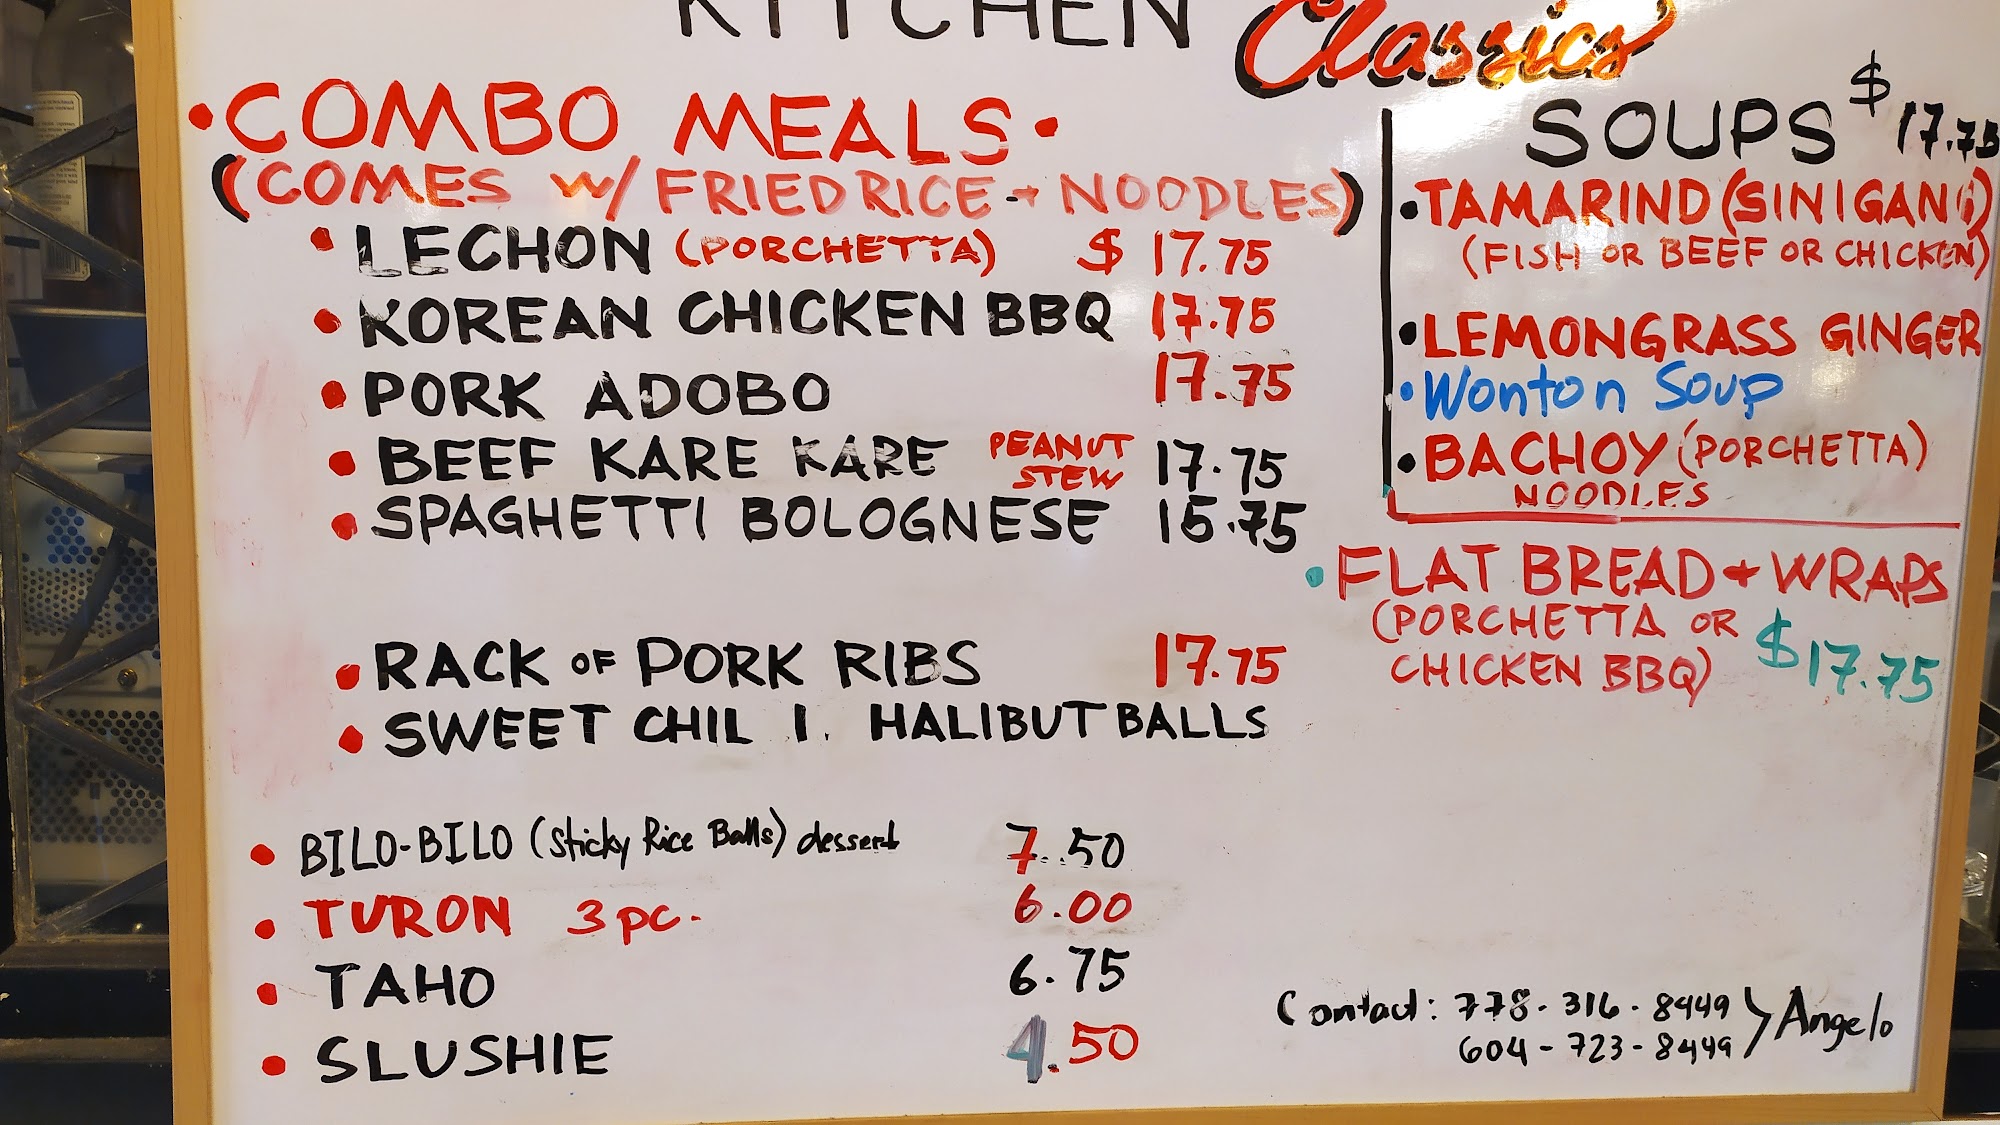 KITCHEN Classics
• COMBO MEALS •
(COMES W/ FRIED RICE + NOODLES)
• LECHON (PORCHETTA) $ 17.75
• KOREAN CHICKEN BBQ 17.75
• PORK ADOBO 17.75
• BEEF KARE KARE PEANUT STEW 17.75
• SPAGHETTI BOLOGNESE 15.75
• RACK OF PORK RIBS 17.75
• SWEET CHIL I. HALIBUT BALLS
• BILO-BILO (Sticky Rice Balls) dessert 7.50
• TURON 3 pc. 6.00
• TAHO 6.75
• SLUSHIE 4.50
SOUPS $ 17.75
• TAMARIND (SINIGANG)
(FISH OR BEEF OR CHICKEN)
• LEMONGRASS GINGER
• Wonton Soup
• BACHOY (PORCHETTA)
NOODLES
• FLAT BREAD + WRAPS
(PORCHETTA OR
CHICKEN BBQ) $17.75
Contact: 778-316-8449 > Angelo
604-723-8449